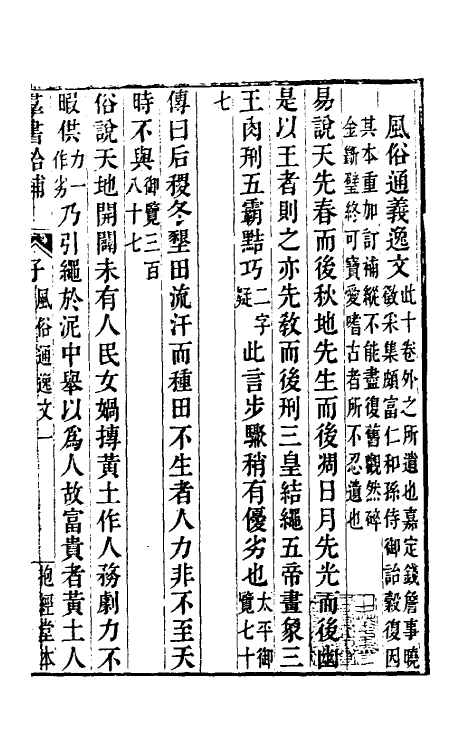 風俗通義逸文此十卷外之所遺也嘉定錢詹事曉
敂采集頗富仁和孫侍御詒穀復因
其本重加訂補縱不能盡復舊觀然碎
金斷璧終可寶愛嗜古者所不忍遺也
易說天先春而後秋地先生而後凋日月先光而後幽
是以王者則之亦先教而後刑三皇結繩五帝畫象三
王肉刑五霸黠巧二字疑此言步驟稍有優劣也太平御覽七十
七
傳曰后稷冬墾田流汗而種田不生者人力非不至天
時不與御覽三百八十七
俗說天地開闢未有人民女媧摶黃土作人務劇力不
暇供力一作劣乃引繩於泥中舉以爲人故富貴者黃土人
羣書拾補 子 風俗通逸文一 抱經堂本